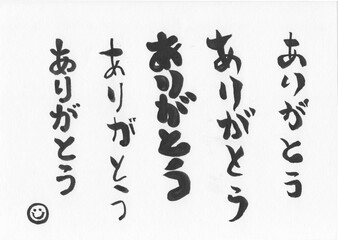 ありがとう
ありがとう
ありがとう
ありがとう
ありがとう